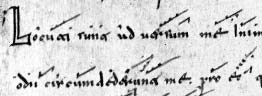 Locuti sunt aduersum me lin
odii circumdederunt me pro eo q